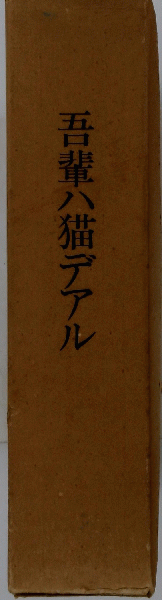 吾輩ハ猫デアル